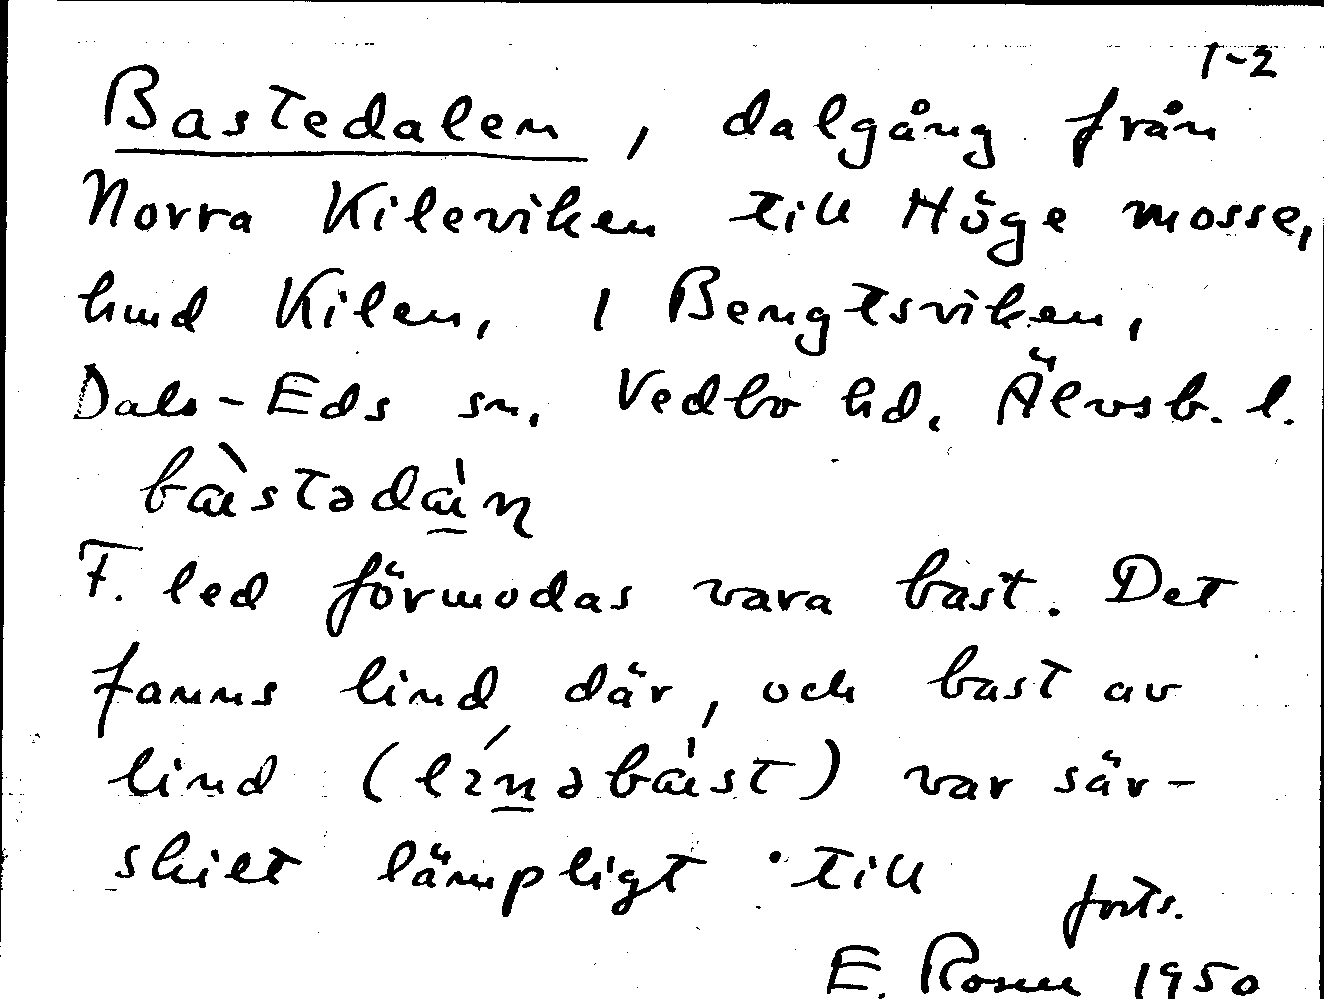 1-2
Bastedalen, dalgång från
Norra Kileviken till Höge mosse,
hmd Kilen, 1 Bengtsviken,
Dals-Eds sn. Vedbo hd. Älvsb. l.
F. led förmodas vara bast. Det
fanns lind där, och bast av
lind (            ) var sär-
skilt lämpligt till
forts.
E. Rosén 1950